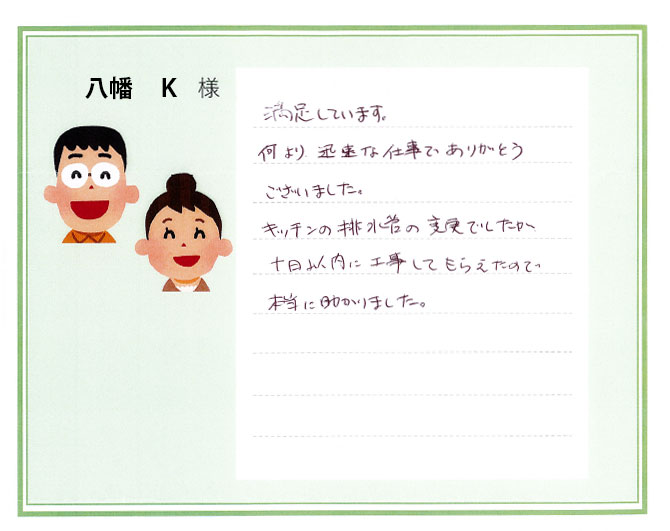 八幡 K 様
満足しています。
何より 迅速な仕事で ありがとう
ございました。
キッチンの排水管の変更でしたが
十日以内に工事してもらえたので
本当に助かりました。